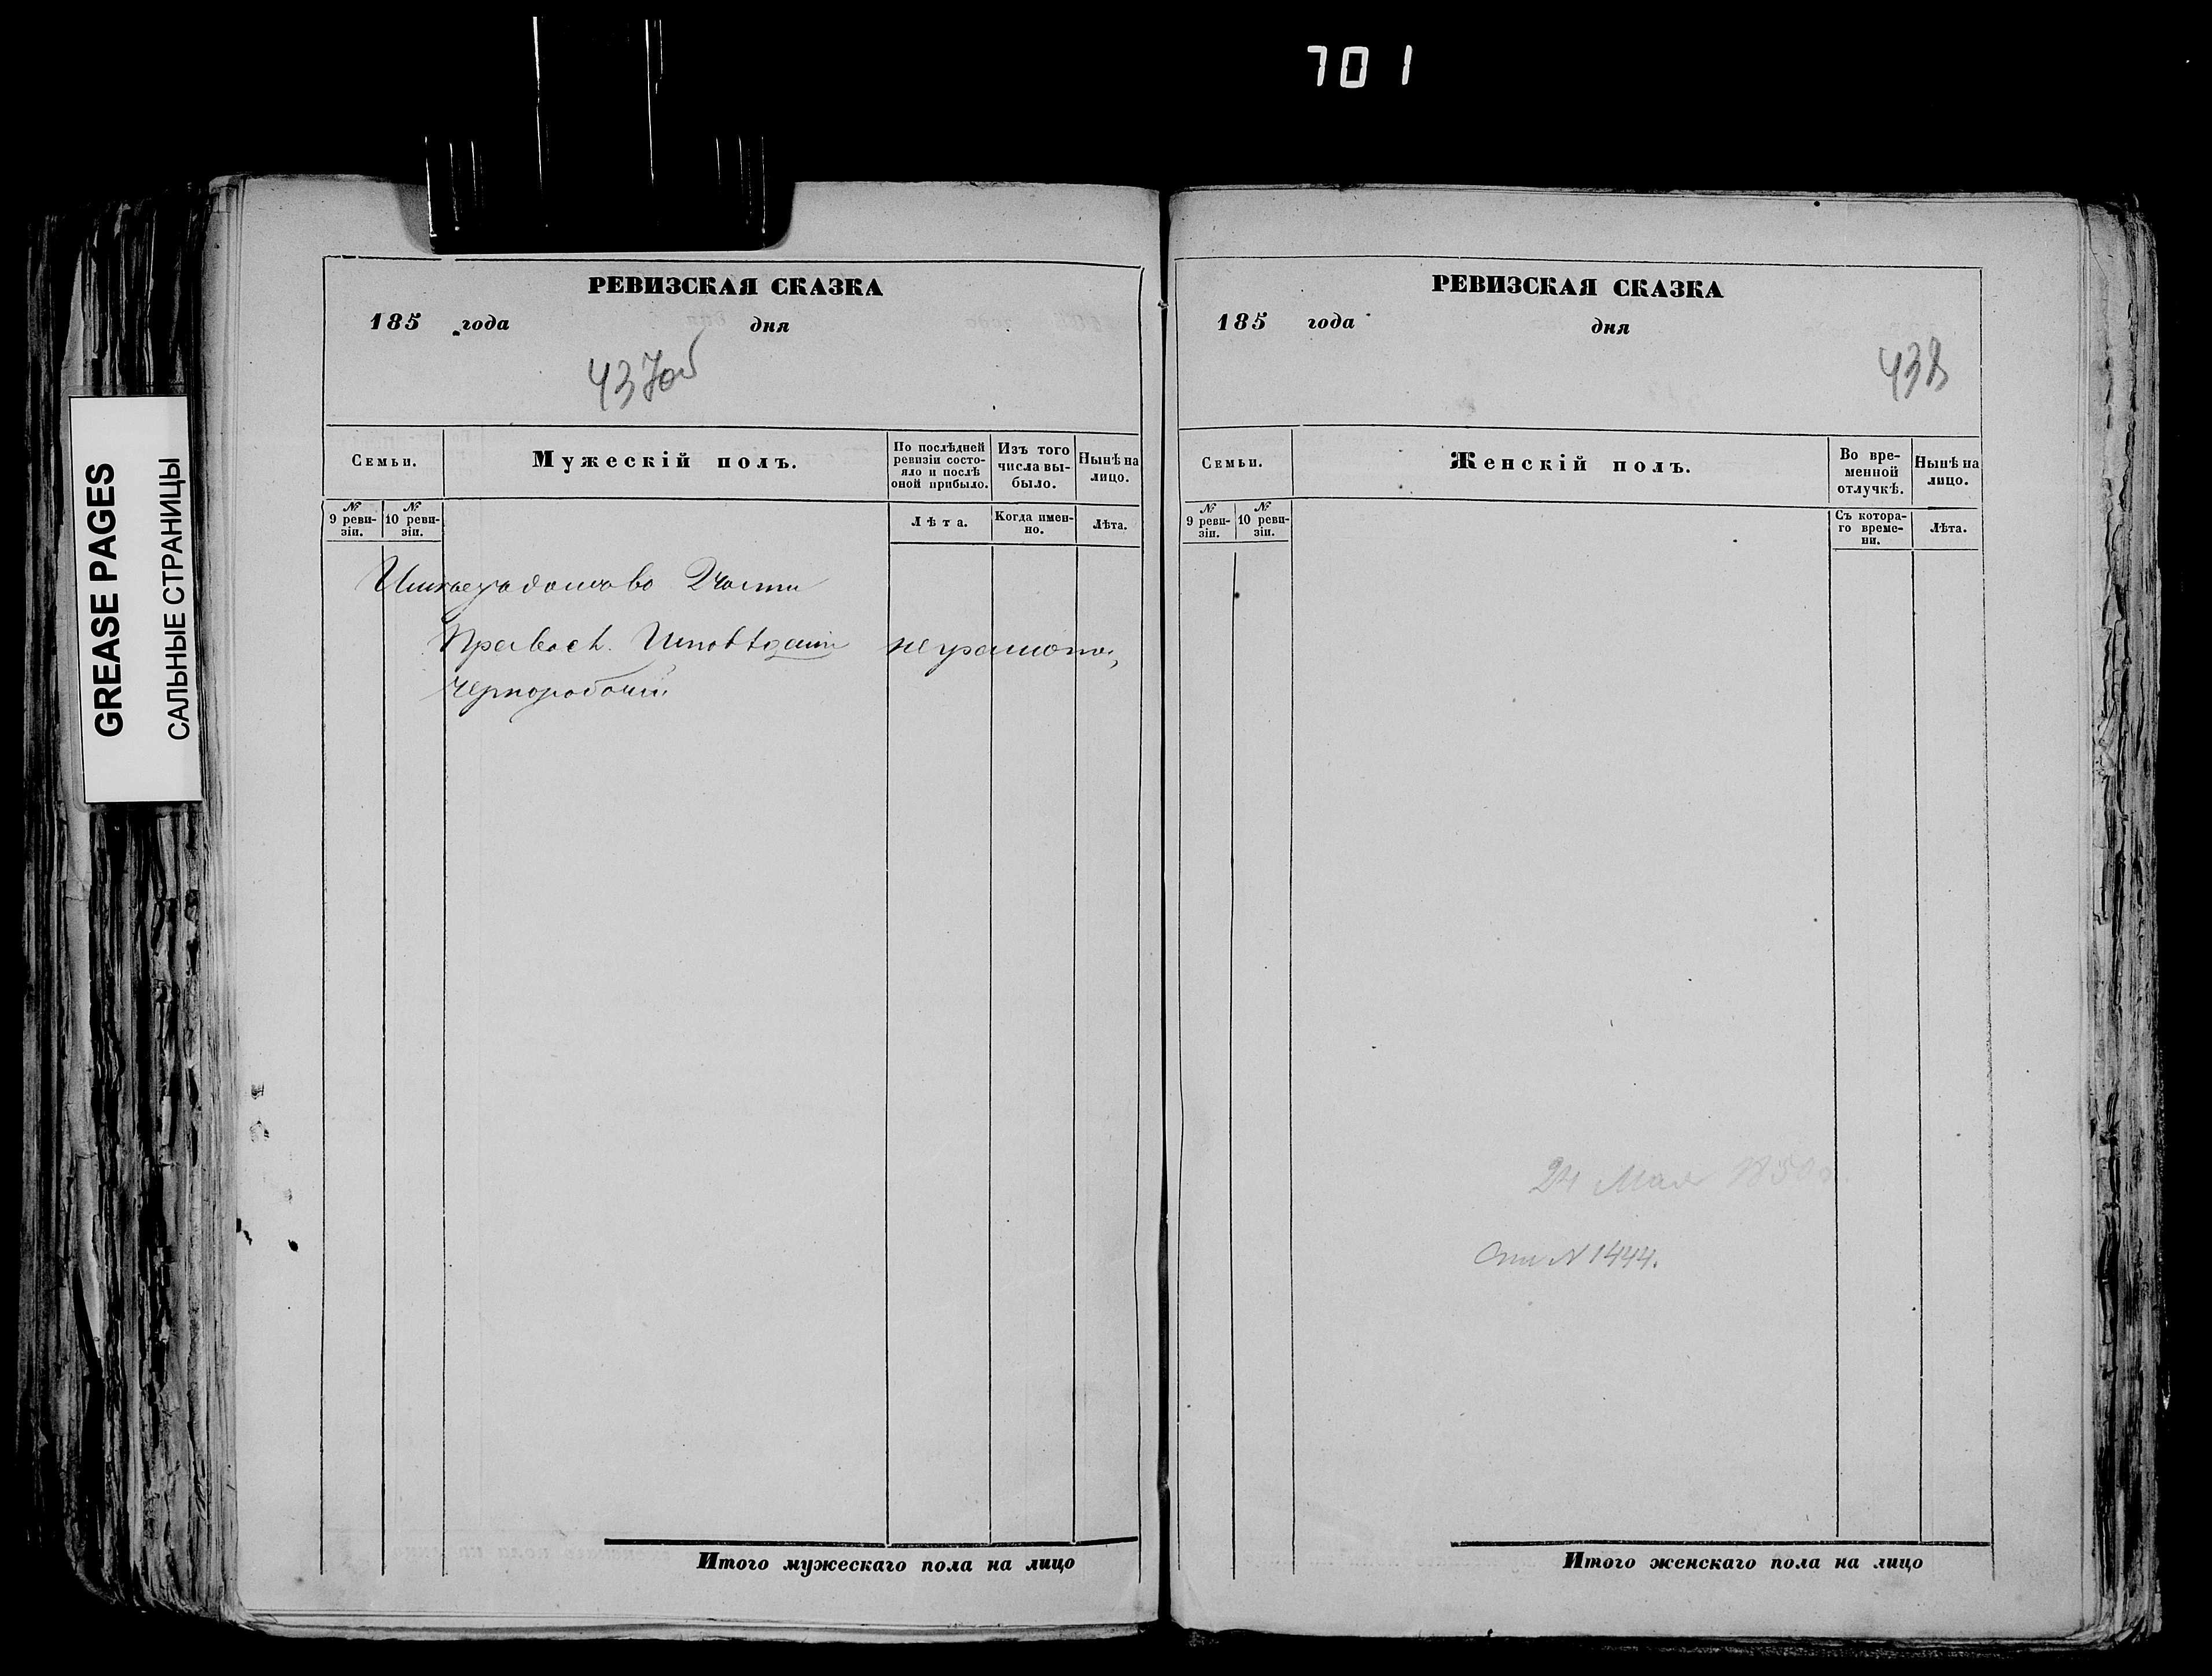 701
GREASE PAGES
САЛЬНЫЕ СТРАНИЦЫ
РЕВИЗСКАЯ СКАЗКА
185 года дня
437об
Семьи.
Мужескій полъ.
По послѣдней ревизіи состо-
яло и послѣ
оной прибыло.
Изъ того
числа вы-
было.
Нынѣ на
лицо.
№
9 реви-
зіи.
№
10 реви-
зіи.
Лѣта.
Когда имен-
но.
Лѣта.
2 части
Правосл. Исповѣданія неграмотн.,
Чернорабочій
Итого мужескаго пола на лицо
РЕВИЗСКАЯ СКАЗКА
185 года дня
438
Семьи.
Женскій полъ.
Во вре-
менной
отлучкѣ.
Нынѣ на
лицо.
№
9 реви-
зіи.
№
10 реви-
зіи.
Съ котора-
го време-
ни.
Лѣта.
24 Мая 1850
N 1444.
Итого женскаго пола на лицо